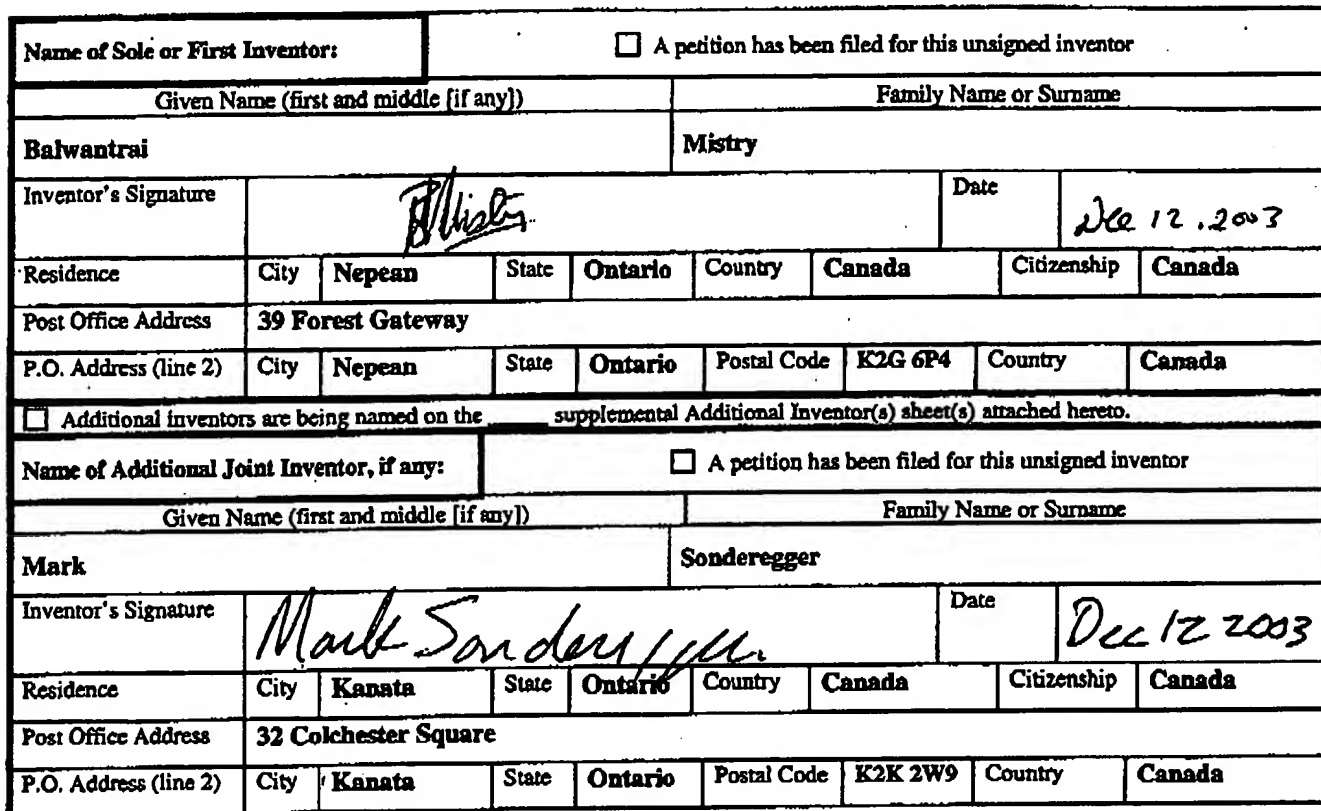 Name of Sole or First Inventor: ☐ A petition has been filed for this unsigned inventor
Given Name (first and middle [if any]) Family Name or Surname
Balwantrai Mistry
Inventor's Signature BMistry Date Dec 12, 2003
Residence City Nepean State Ontario Country Canada Citizenship Canada
Post Office Address 39 Forest Gateway
P.O. Address (line 2) City Nepean State Ontario Postal Code K2G 6P4 Country Canada
☐ Additional inventors are being named on the ____ supplemental Additional Inventor(s) sheet(s) attached hereto.
Name of Additional Joint Inventor, if any: ☐ A petition has been filed for this unsigned inventor
Given Name (first and middle [if any]) Family Name or Surname
Mark Sonderegger
Inventor's Signature Mark Sonderegger Date Dec 12 2003
Residence City Kanata State Ontario Country Canada Citizenship Canada
Post Office Address 32 Colchester Square
P.O. Address (line 2) City Kanata State Ontario Postal Code K2K 2W9 Country Canada